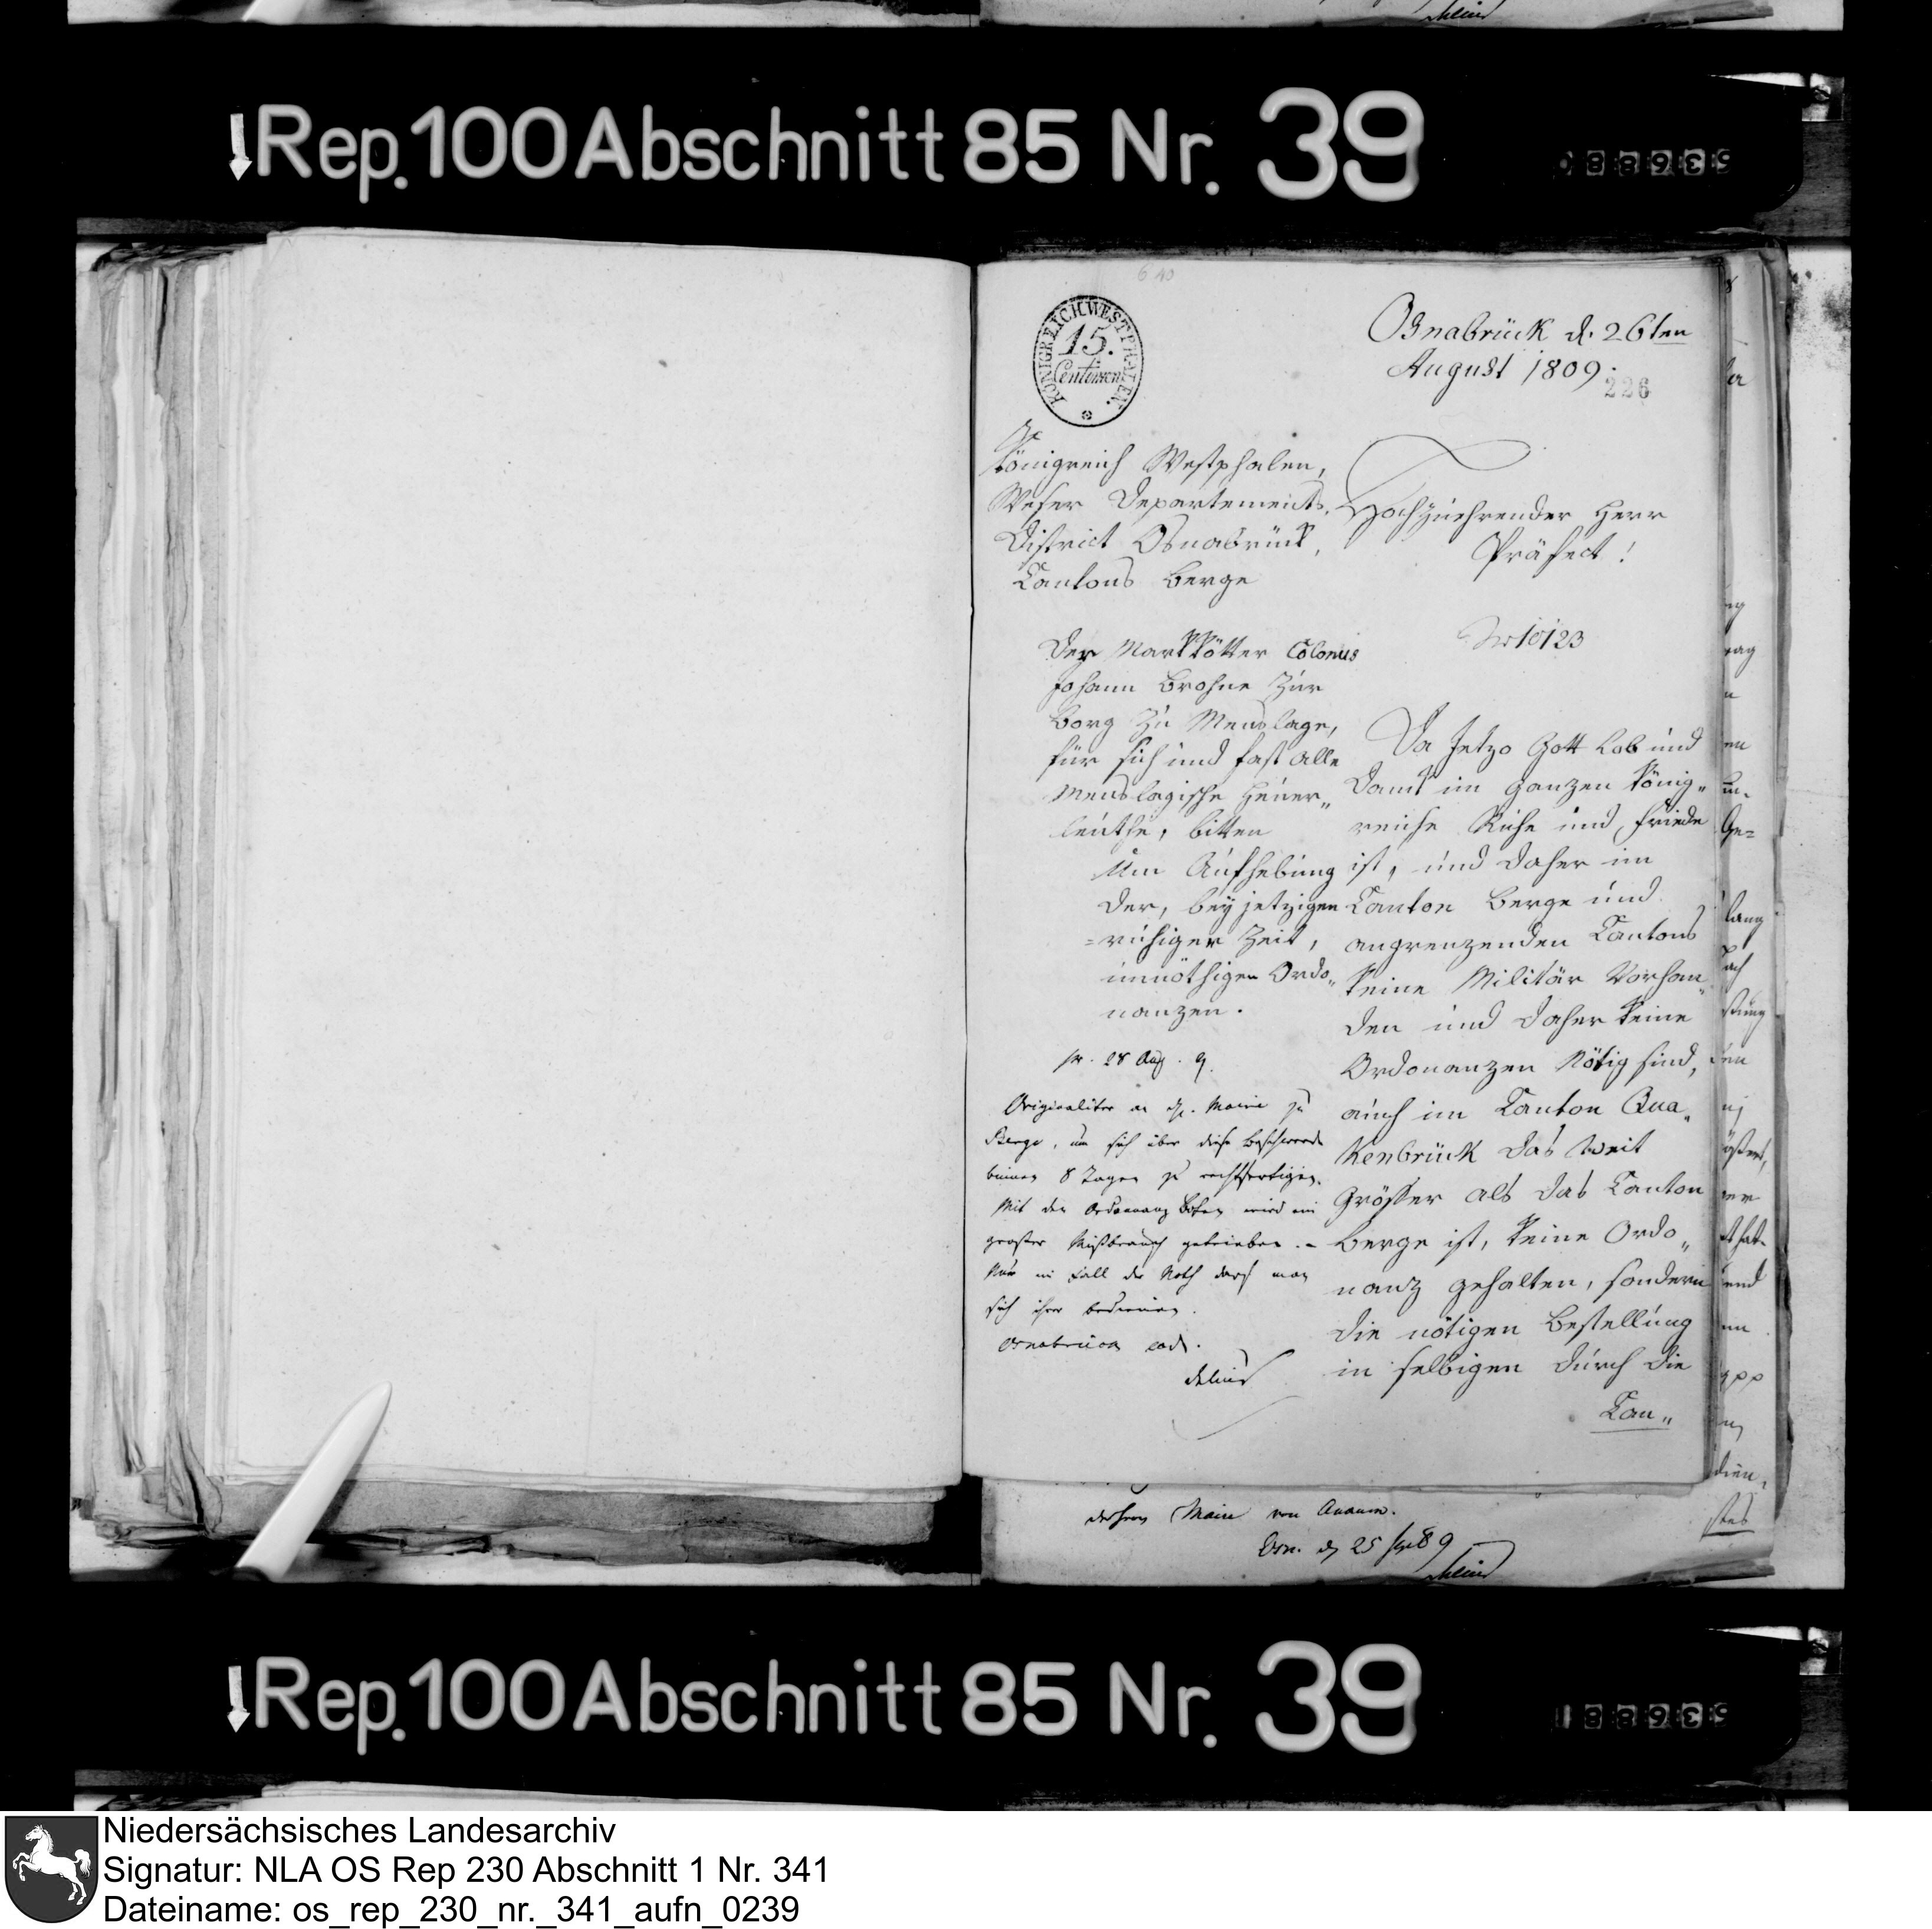 Rep. 100 Abschnitt 85 Nr. 39
KÖNIGREICH WESTPHALEN.
15.
Centimen
Osnabrück d. 26ten
August 1809.
226
Königreich Westphalen,
Weser Departements,
District Osnabrück,
Cantons Berge
Hochzuehrender Herr
Präfect!
Der Markkötter Colonus
Johann Brohne zur
Borg zu Menslage,
für sich und fast alle
Menslagische Heuer„
leuthe, bitten
Um Aufhebung
der, bey jetzigen
=ruhiger Zeit,
unnöthigen Ordo„
nanzen.
pr. 28 Aug. 9.
Originaliter an H. Maire zu
Berge, um sich über diese Beschwerde
binnen 8 Tagen zu rechtfertigen.
Mit den Ordonnanz Boten wird ein
großer Mißbrauch getrieben. –
Nur im Fall der Noth darf man
sich ihrer bedienen.
Osnabrück eod.
Delius
No 10123
Da Jetzo Gott Lob und
Dank im ganzen König„
reiche Ruhe und Friede
ist, und daher im
Canton Berge und
angrenzenden Cantons
keine Militär Vorhan„
den und daher keine
Ordonanzen Nötig sind,
auch im Canton Qua„
kenbrück das weit
Grösser als das Canton
Berge ist, keine Ordo„
nanz gehalten, sondern
die nötigen Bestellung
in selbigen durch die
Can„
Maire von
Osn. d 25 Sept 89
Delius
stes
Rep. 100 Abschnitt 85 Nr. 39
Niedersächsisches Landesarchiv
Signatur: NLA OS Rep 230 Abschnitt 1 Nr. 341
Dateiname: os_rep_230_nr._341_aufn_0239